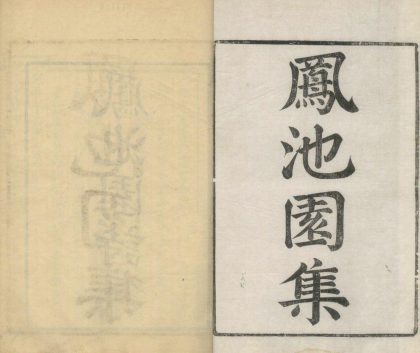 鳳池園集